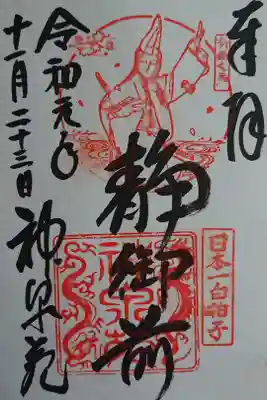 奉拝
静御前
日本一白拍子
神泉苑
令和元年
十一月二十三日
神泉苑